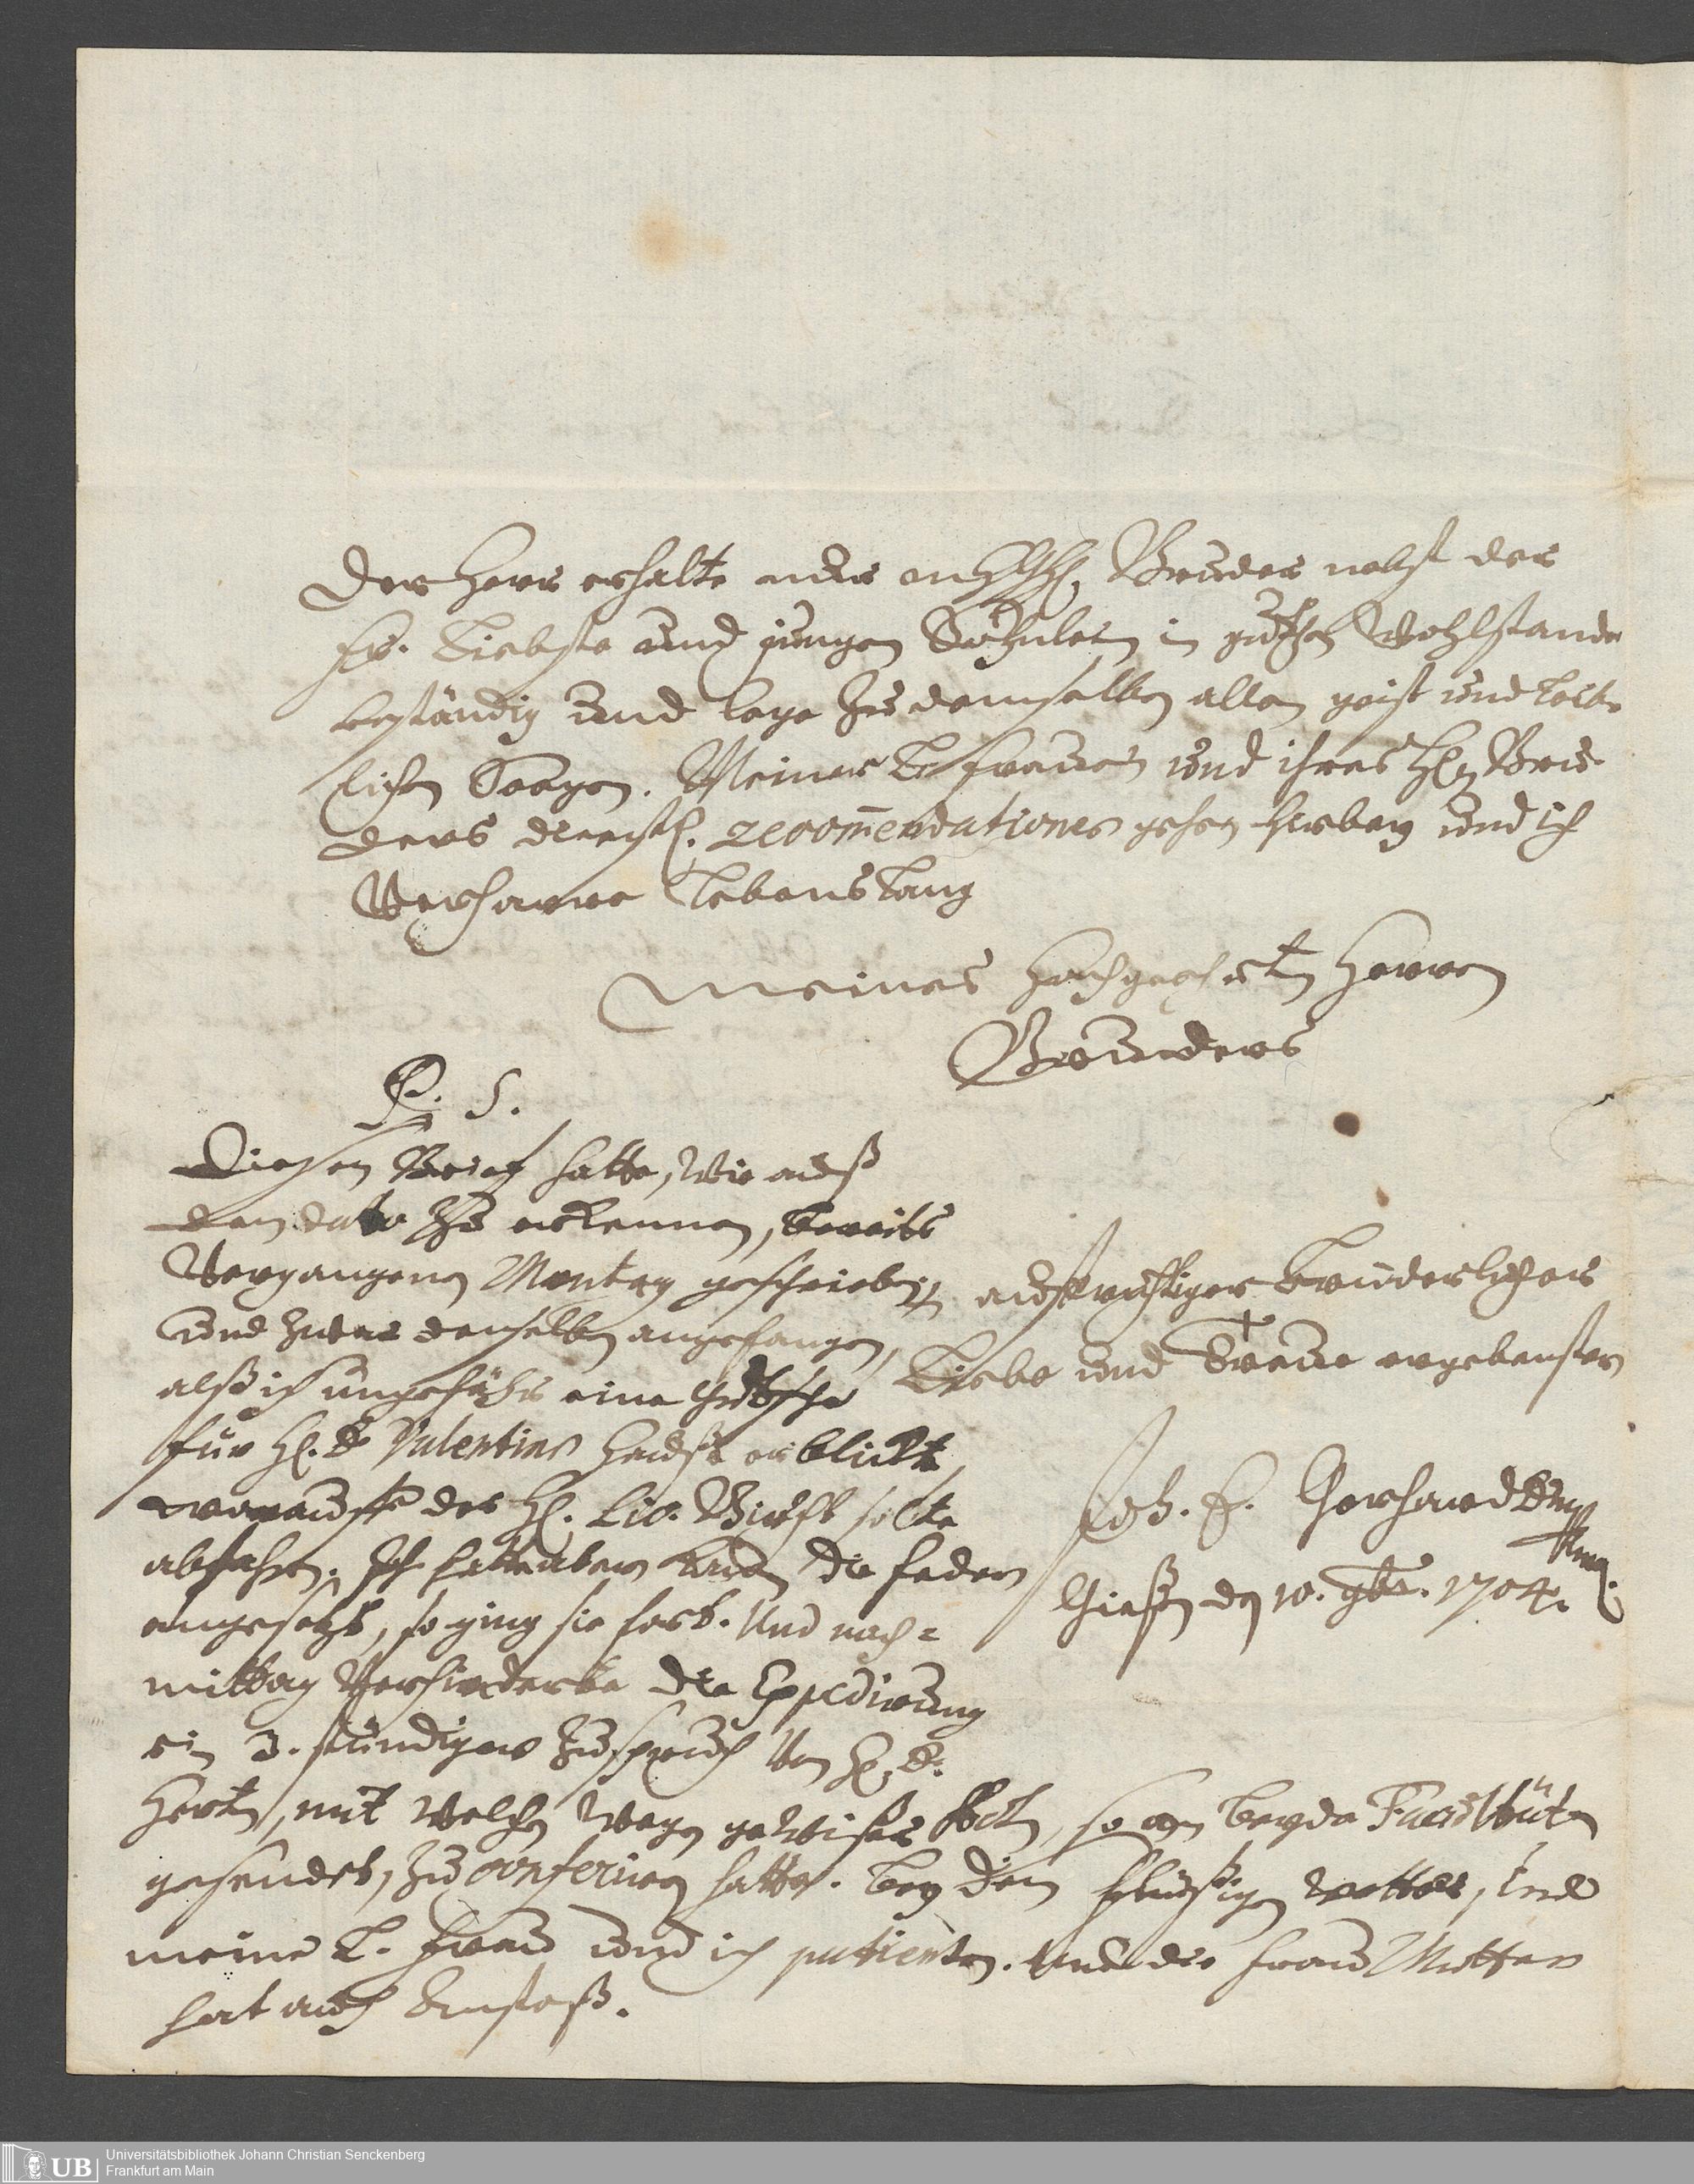 Der Herr erhalte meinen HochgeEhrten Hn. Bruder nebst der
Fr. Liebste und jungen Söhnlein in gutem Wohlstande
beständig und lege zu demselben allen geist und leib-
lichen Seegen. Meiner L. Frauen und ihres Hn Bru-
ders dienstl. recommendationes gehen hierbey und ich
Verharre Lebenslang
Meines Hochgeehrten Herren
Bruders
P. S.
Diesen Brief hatte, wie auß
dem dato zu erkennen, bereits
Vergangenen Montag geschrieben
und zwar denselben angefangen,
alß ich ungefähr eine Gutsche
für H. D Valentins Hauße erblickt,
worauff der H. Lic. Bürst solte
abfahren. Ich hatte aber kaum die feder
angesetzt, so ging sie fort. Und nach=
mittag Verhinderte die Expedirung
ein 3. stündiger Zuspruch Von H. D.
Hertn, mit welchem wegen gewißer
gesendet, zu conferiren hatte. Bey dem flüßigen wetter, sind
meine L. Frau und ich patienten. Und die Frau Mutter
hat auch Anstoß.
aufrichtiger Brüderlicher
Liebe und Treue ergebenster
Joh. H. Gerhard
Gießen den 10. 9br. 1704.
UB
Universitätsbibliothek Johann Christian Senckenberg
Frankfurt am Main